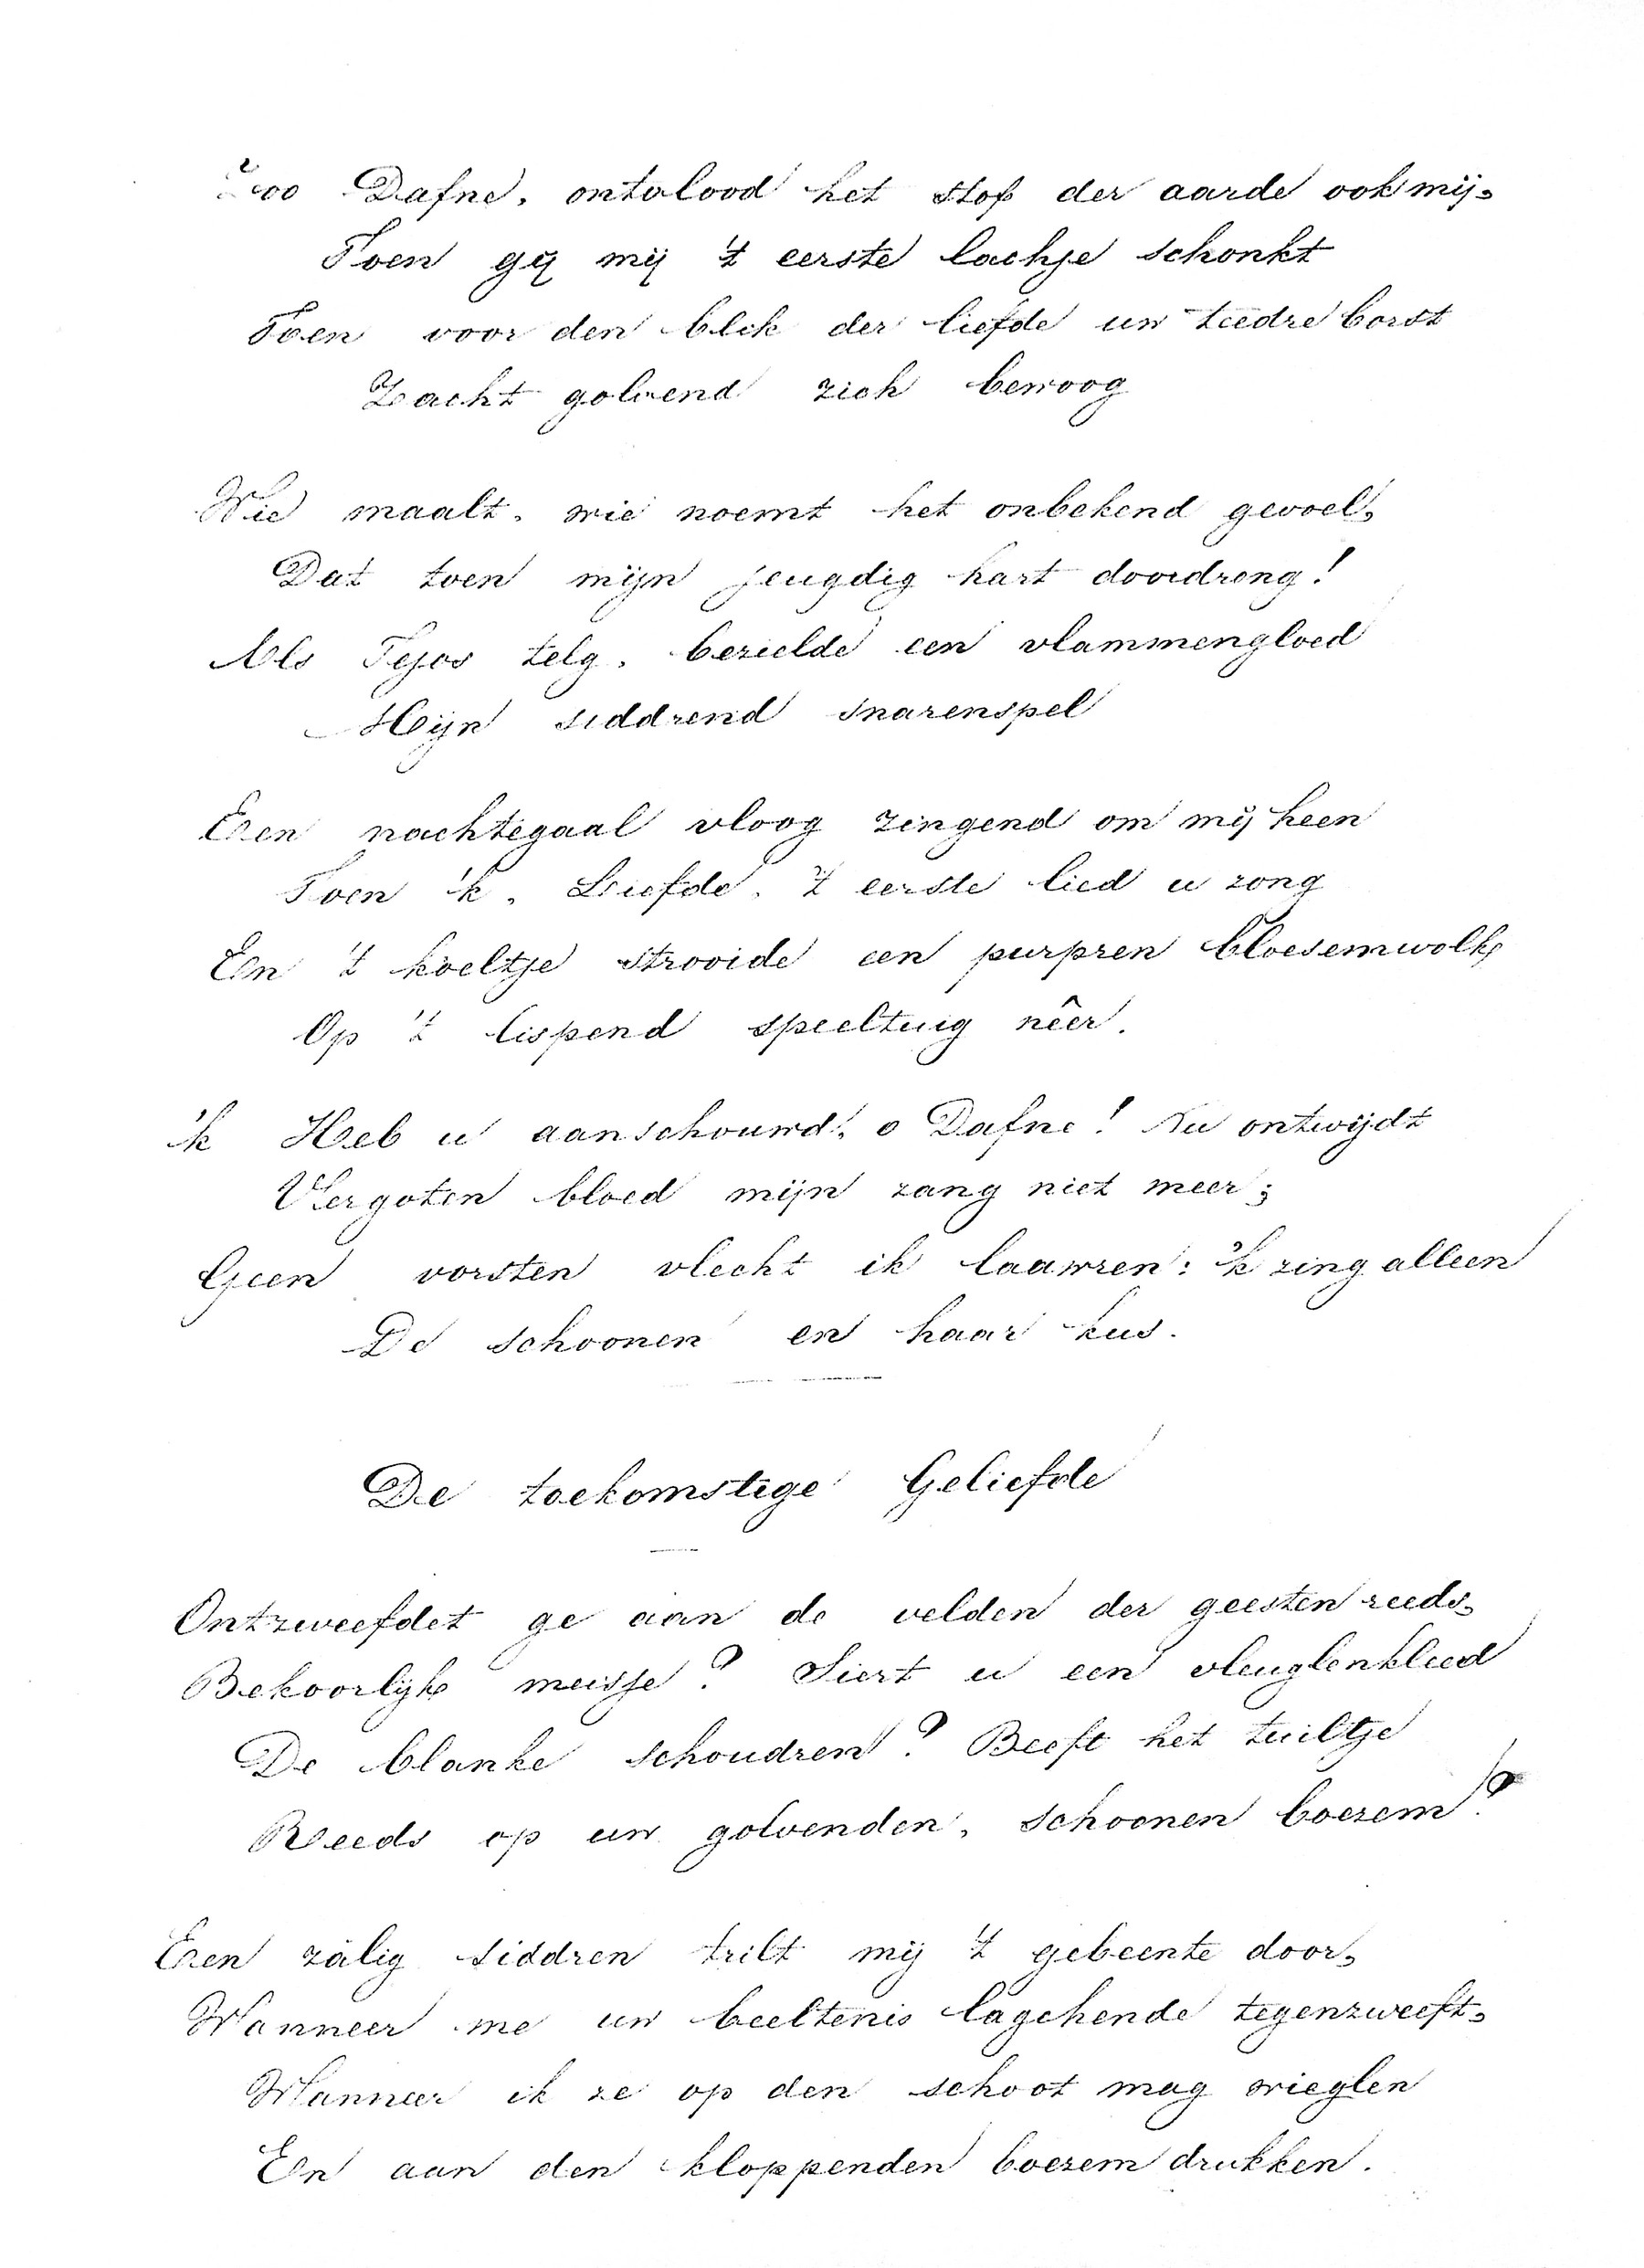 Zoo Dafne, ontvlood het stof der aarde ook mij,
Toen gij mij 't eerste lachje schonkt
Toen voor den blik der liefde uw teedre borst
Zacht golvend zich bewoog
Wie maalt, wie noemt het onbekend gevoel,
Dat toen mijn jeugdig hart doordrong!
Als Tejos telg, bezielde een vlammengloed
Mijn siddrend snarenspel
Een nachtegaal vloog zingend om mij heen
Toen 'k, Liefde, 't eerste lied u zong
En 't koeltje strooide een purpren bloesemwolk
Op 't lispend speeltuig nêer.
'k Heb u aanschouwd, o Dafne! Nu ontwijdt
Vergoten bloed mijn zang niet meer;
Geen vorsten vlecht ik laauren: 'k zing alleen
De schoonen en haar kus.
De toekomstige Geliefde
Ontzweefdet ge aan de velden der geesten reeds,
Bekoorlijk meisje? Siert u een vleuglenkleed
De blanke schoudren? Beeft het tuiltje
Reeds op uw golvenden, schoonen boezem?
Een zâlig siddren trilt mij 't gebeente door,
Wanneer me uw beeltenis lagchende tegenzweeft,
Wanneer ik ze op den schoot mag wieglen
En aan den kloppenden boezem drukken.